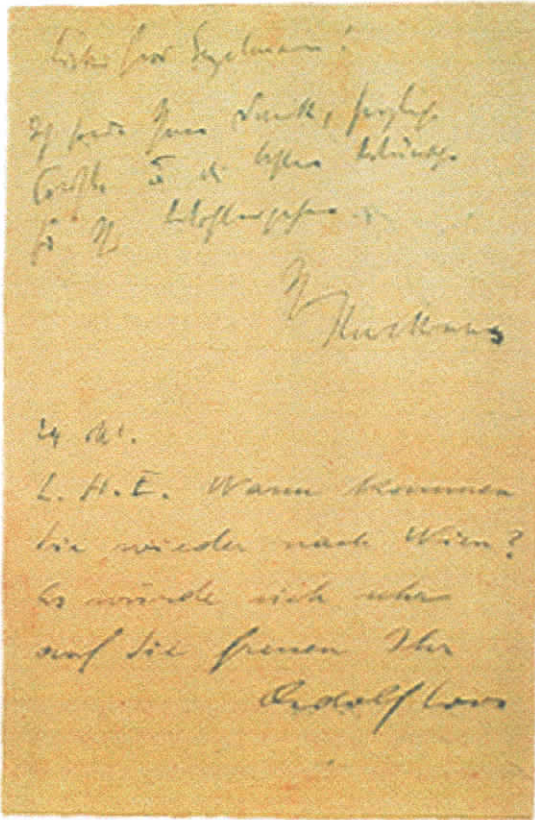 Lieber Herr Engelmann!
Ich sende Ihnen Dank, herzliche
Grüße u. die besten Wünsche
für Ihr Wohlergehen.
Ihr
Karl Kraus
24 Okt.
L. H. E. Wann kommen
Sie wieder nach Wien?
Es würde sich sehr
auf Sie freuen Ihr
Adolf Loos